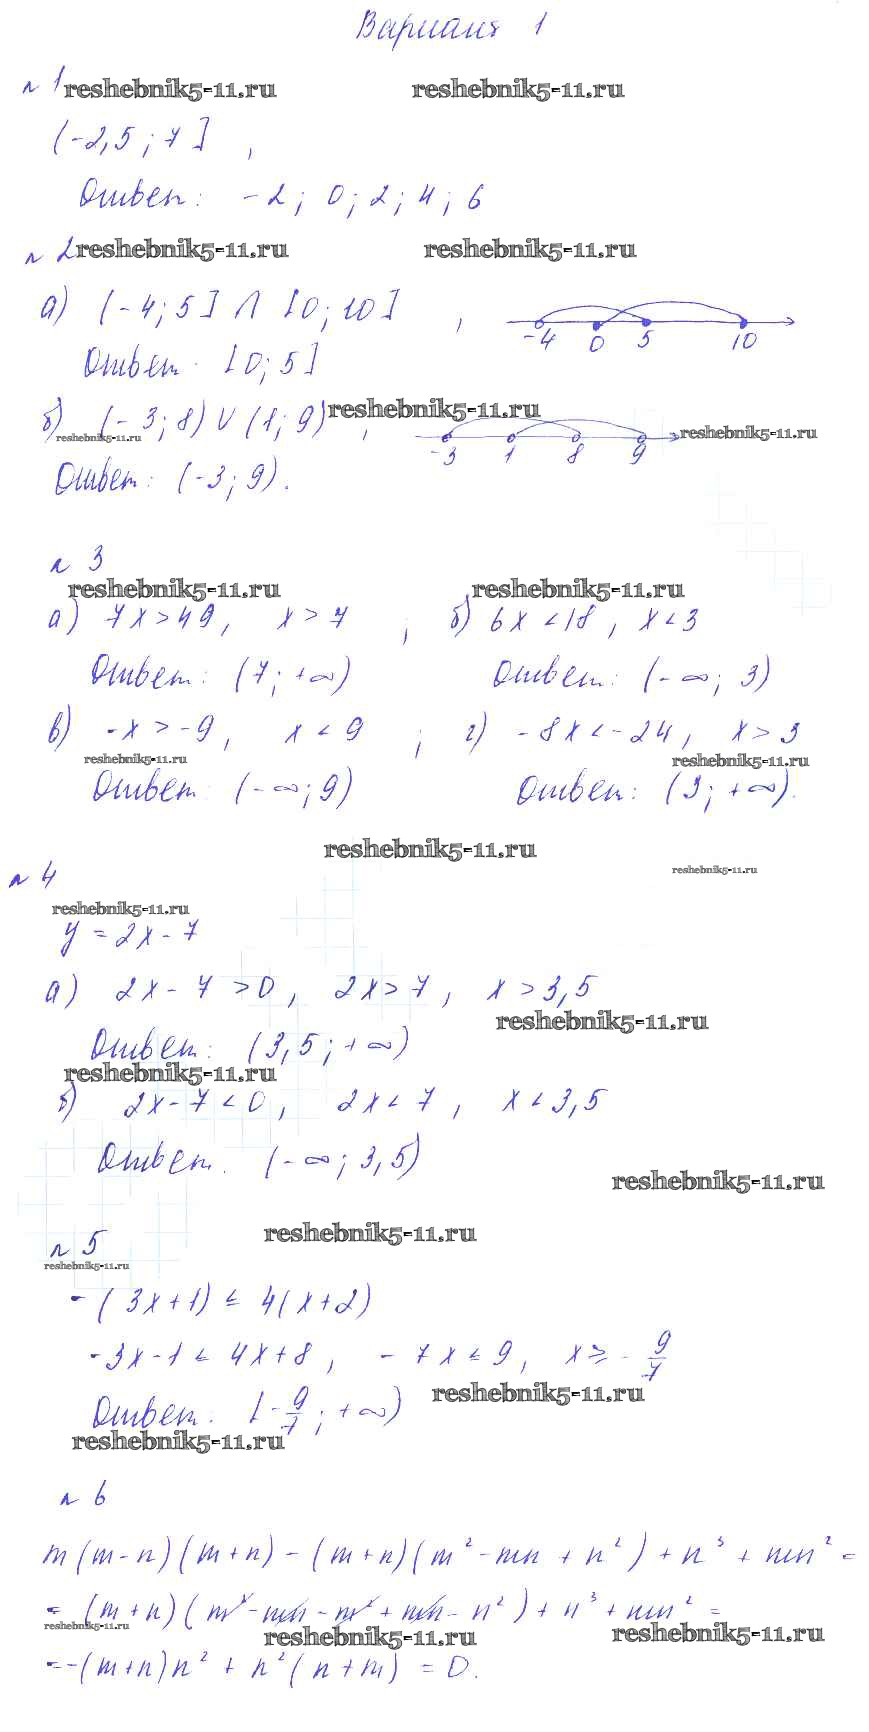 Вариант 1
№ 1 reshebnik5-11.ru reshebnik5-11.ru
(-2,5; 7] ,
Ответ: -2; 0; 2; 4; 6
№ 2 reshebnik5-11.ru reshebnik5-11.ru
а) (-4; 5] ∩ [0; 10] , -4 0 5 10
Ответ: [0; 5]
б) (-3; 8) ∪ (1; 9) , reshebnik5-11.ru -3 1 8 9
reshebnik5-11.ru reshebnik5-11.ru
Ответ: (-3; 9).
№ 3
reshebnik5-11.ru reshebnik5-11.ru
а) 7x > 49, x > 7 ; б) 6x < 18, x < 3
Ответ: (7; +∞) Ответ: (-∞; 3)
в) -x > -9, x < 9 ; г) -8x < -24, x > 3
reshebnik5-11.ru reshebnik5-11.ru
Ответ: (-∞; 9) Ответ: (3; +∞).
reshebnik5-11.ru
№ 4 reshebnik5-11.ru
reshebnik5-11.ru
y = 2x - 7
а) 2x - 7 > 0, 2x > 7, x > 3,5
reshebnik5-11.ru
Ответ: (3,5; +∞)
reshebnik5-11.ru
б) 2x - 7 < 0, 2x < 7, x < 3,5
Ответ. (-∞; 3,5)
reshebnik5-11.ru
reshebnik5-11.ru
№ 5
reshebnik5-11.ru
-(3x+1) ≤ 4(x+2)
-3x-1 ≤ 4x+8, -7x ≤ 9, x ≥ -9/7
reshebnik5-11.ru
Ответ: [-9/7; +∞)
reshebnik5-11.ru
№ 6
m(m-n)(m+n) - (m+n)(m² - mn + n²) + n³ + mn² =
= (m+n)(m² - mn - m² + mn - n²) + n³ + mn² =
reshebnik5-11.ru reshebnik5-11.ru reshebnik5-11.ru
= -(m+n)n² + n²(n+m) = 0.